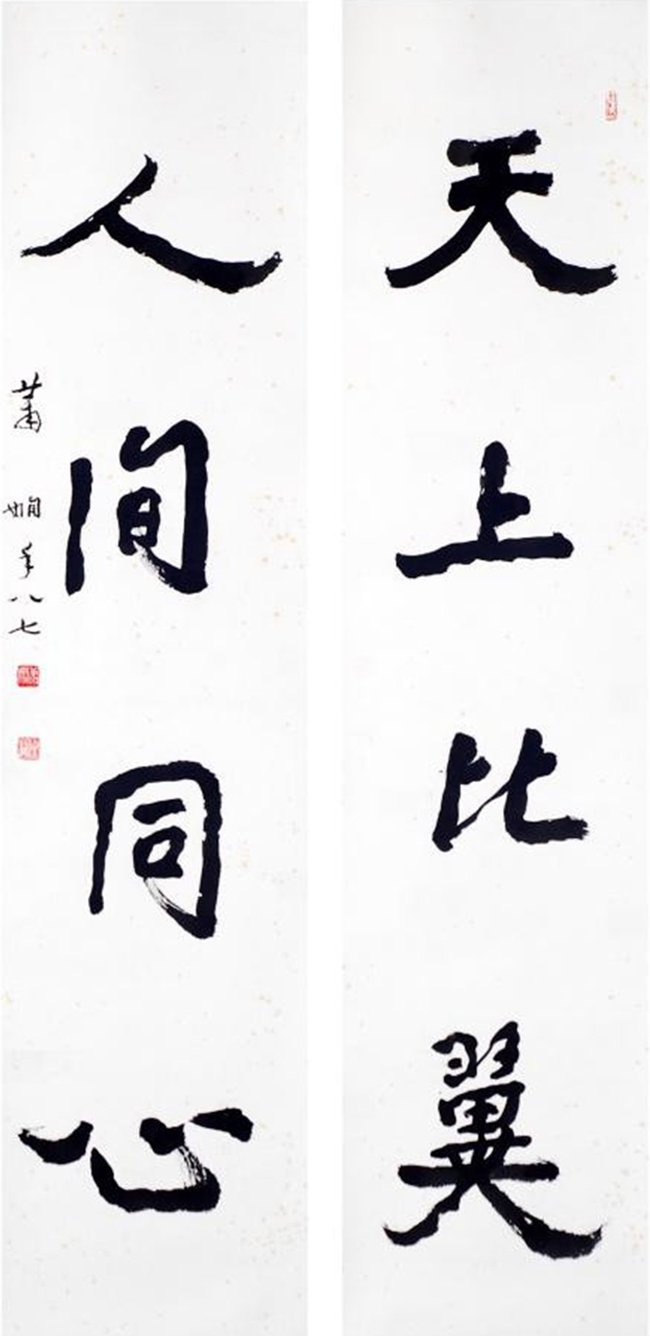 天上比翼
人间同心
萧娴年八七